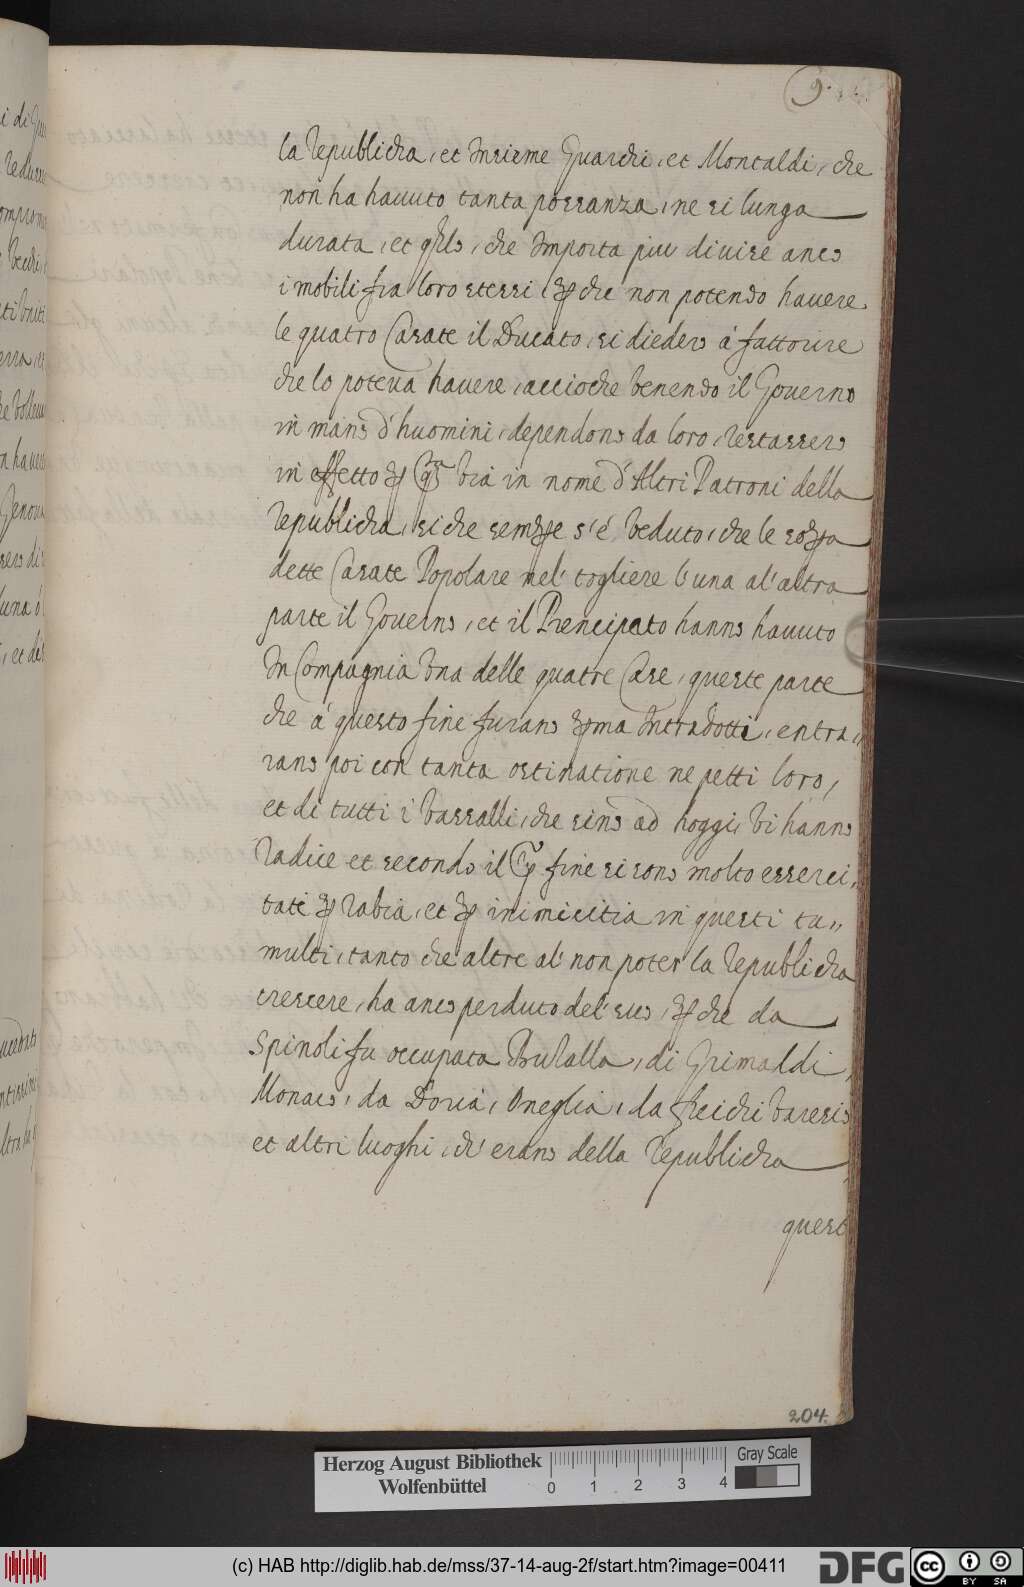 9.
la Republicha, et Insieme Guarchi, et Montaldi, che
non ha havuto tanta possanza, ne si lunga
durata, et qllo, che Importa piu divise anco
i mobili fra loro stessi, ꝑche non potendo havere
le quatro Casate il Ducato, si diedero á fattorire
che lo poteva havere, accioche venendo il Governo
in mano d'huomini, dependono da loro, restassero
in effetto ꝑ via in nome d'Altri Patroni della
Republicha, si che semꝑe s'é veduto, che le soꝑa
dette Casate Popolare nel' togliere l'una al'altra
parte il Governo, et il Prencipato hanno havuto
In Compagnia Una delle quatre Case, queste parte
che á questo fine furano ꝑma Intradotti, entra„
rano poi con tanta ostinatione ne petti loro,
et di tutti i vassalli, che sino ad hoggi, vi hanno
radice et secondo il fine si sono molto esserci„
tati ꝑ rabia, et ꝑ inimicitia in questi tu„
multi, tanto che altre al' non poter la Republicha
crescere, ha anco perduto del' suo, ꝑche da
Spinoli fu occupata di Grimaldi,
Monaco, da Doria, Oneglia, da
et altri luoghi, ch' erano della Republicha
quest
204.
Herzog August Bibliothek
Wolfenbüttel
0 1 2 3 4
Gray Scale
(c) HAB http://diglib.hab.de/mss/37-14-aug-2f/start.htm?image=00411
DFG
cc BY SA